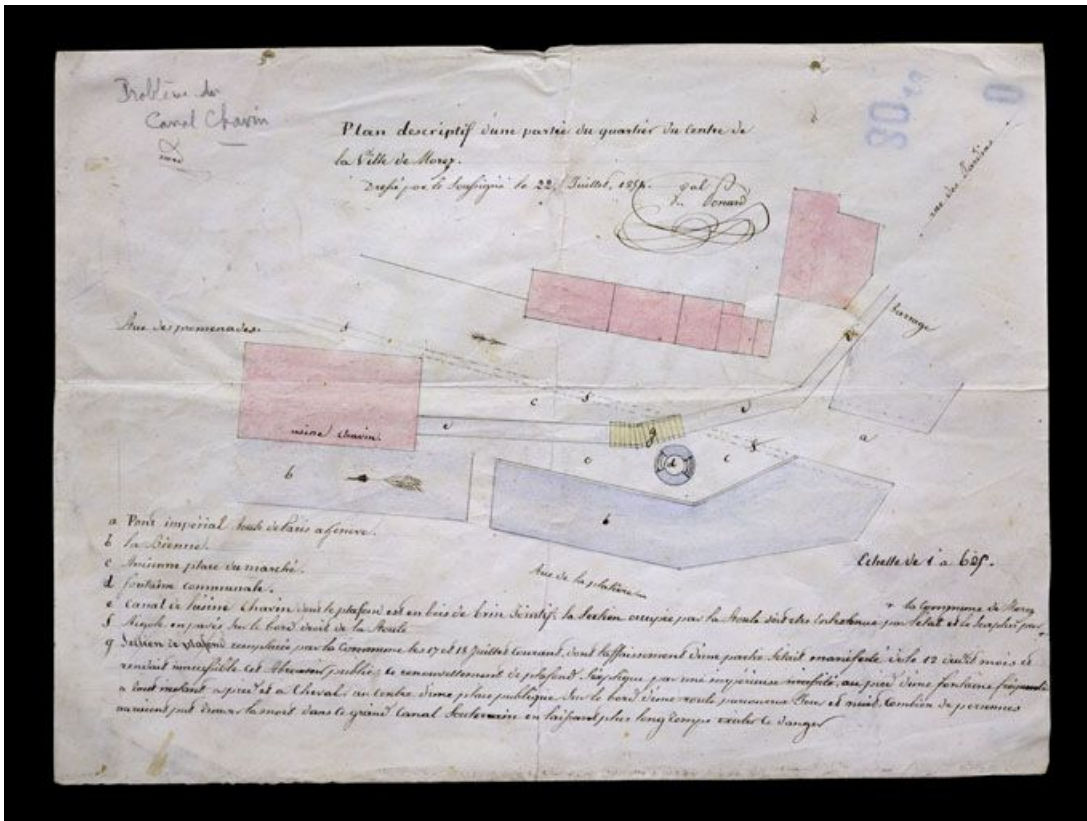 Problème du
Canal Chavin
Plan descriptif d'une partie du quartier du centre de
la Ville de Morez.
Dressé par le Soussigné le 22 Juillet, 185
80
0
rue des Jardins
barrage
Rue des promenades.
f
c
f
e
e
usine Chavin.
g
d
c
c
f
a
b
b
a Pont impérial route de Paris a Geneve.
b la Bienne.
c Ancienne place du marché.
d fontaine communale.
Rue de la platine
Echelle de 1 a 625.
e Canal de l'usine Chavin dont le plafond est en bois de brin la Section occupée par la Route doit etre entretenue par l'état et le Surplus par
la Commune de Morez
f Rigole en pavés Sur le bord droit de la Route
g Section de plafond remplacée par la Commune les 17 et 18 Juillet Courant, dont l'affaissement d'une partie S'etait manifesté dès le 12 dudit mois et
rendait inaccessible cet Abreuvoir public; ce renouvellement de plafond S'explique par une impérieuse nécessité, au pied d'une fontaine fréquentée
a tout instant a pied et a Cheval, au centre d'une place publique Sur le bord d'une route parcourue Jour et nuit, combien de personnes
auraient put trouver la mort dans ce grand Canal Souterrain en laissant plus long temps exister ce danger